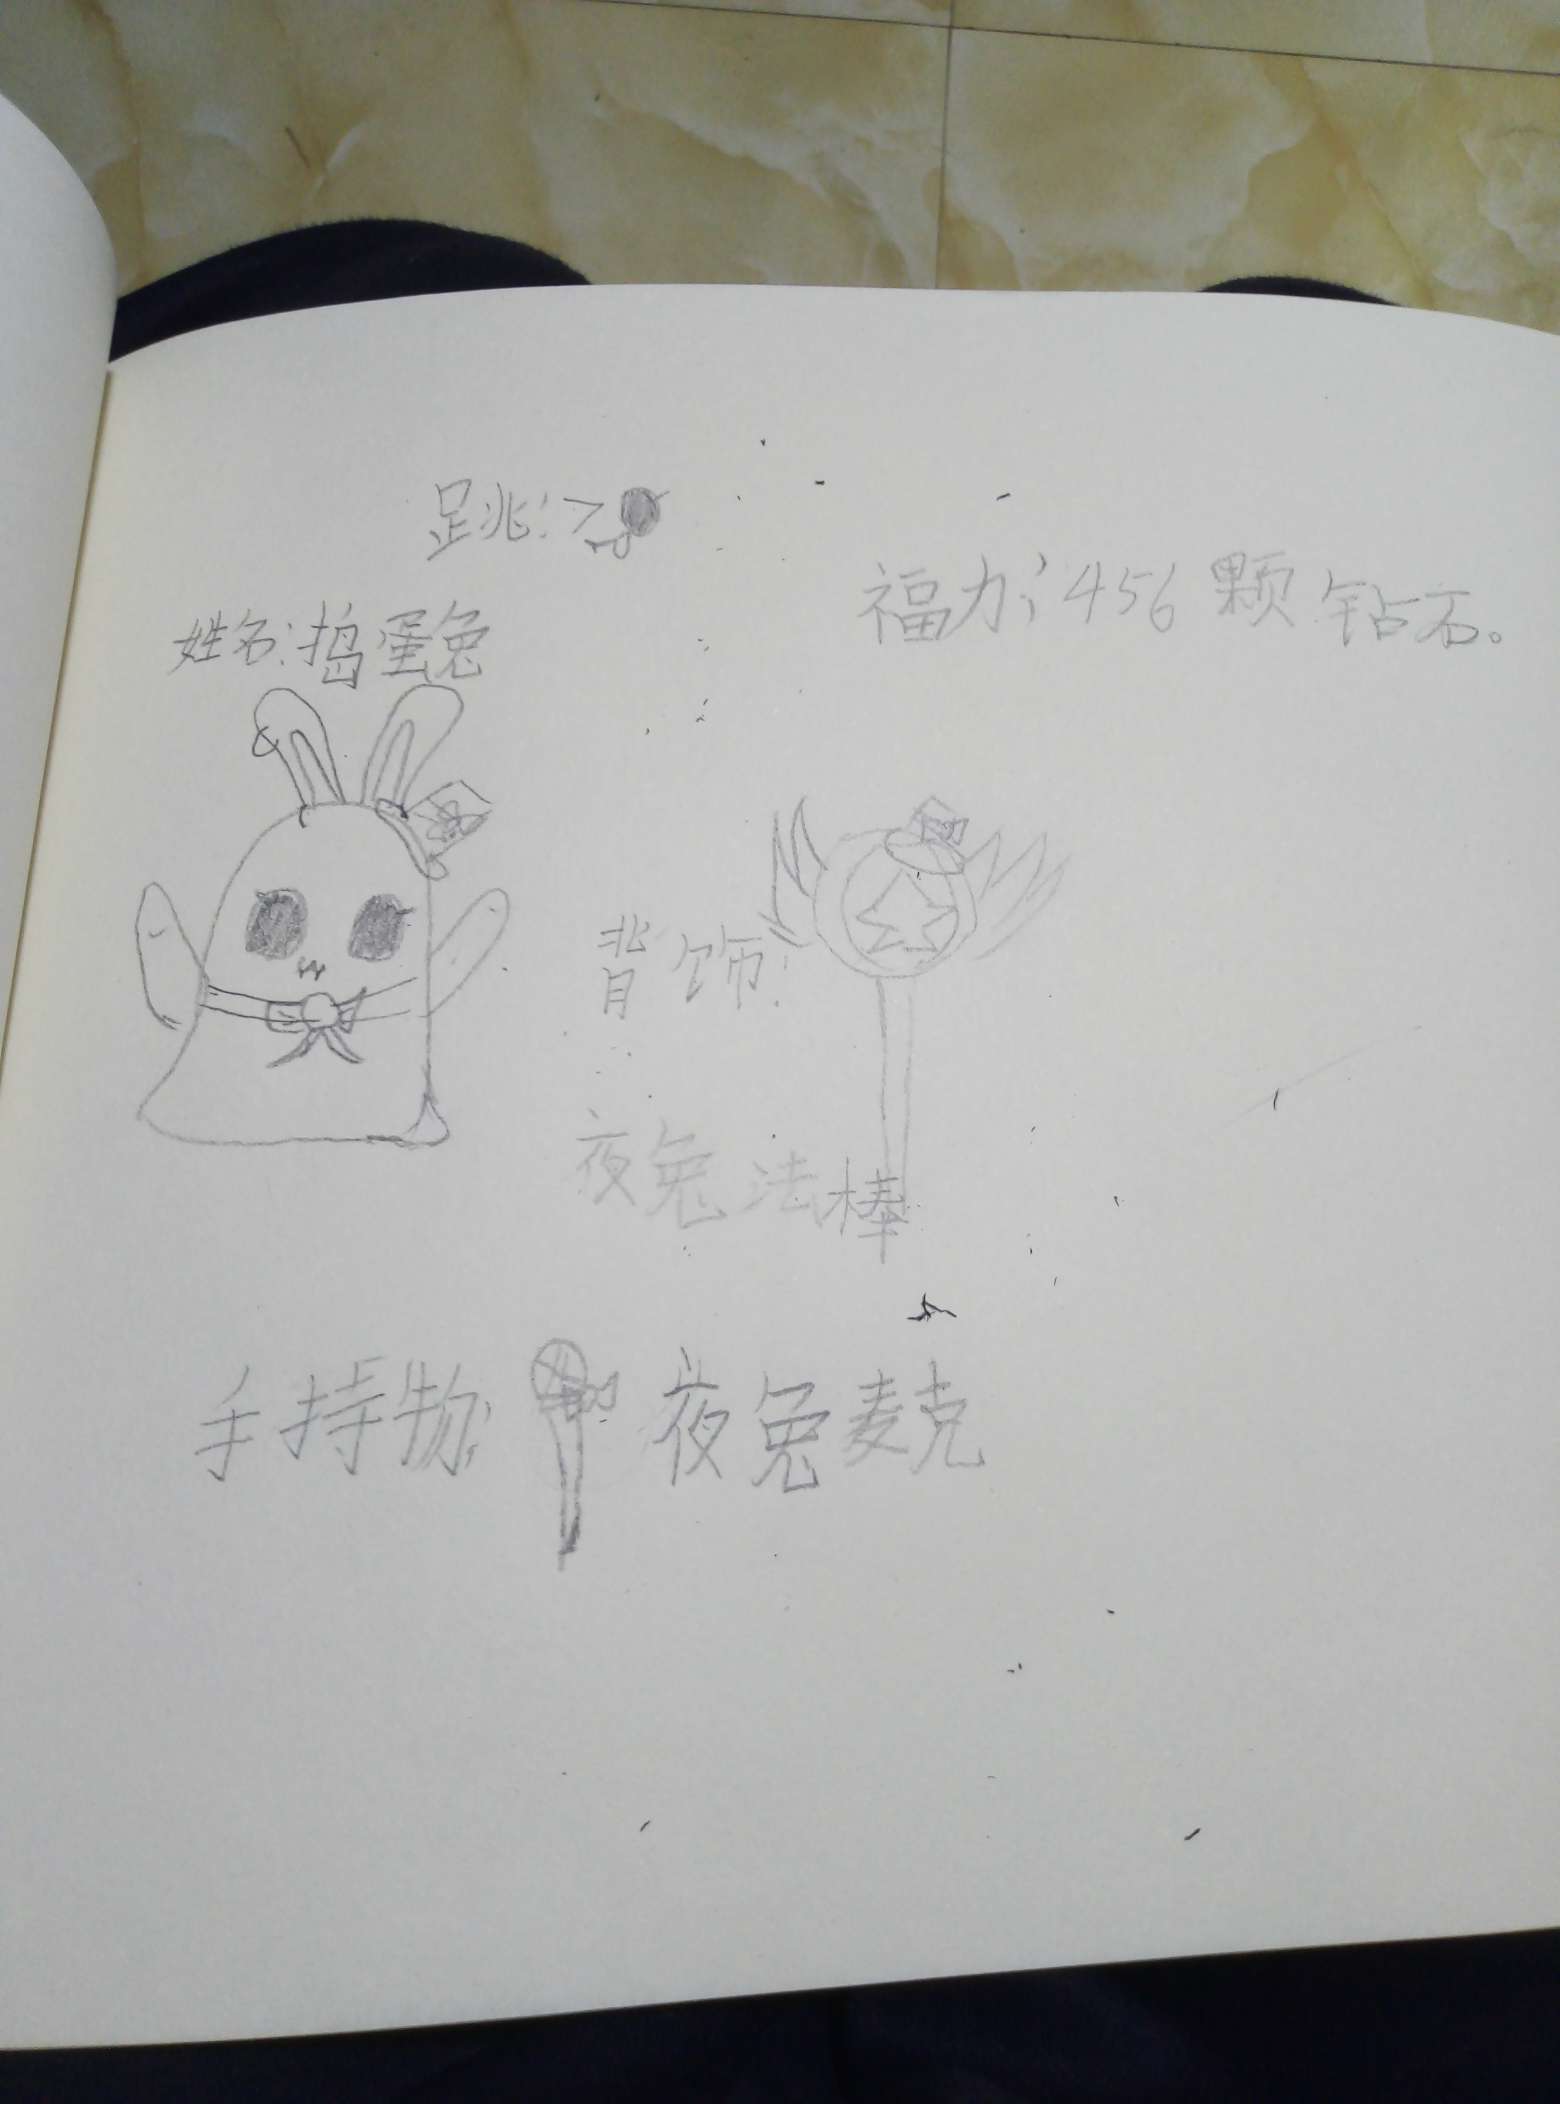 跳:
福力:456颗钻石。
姓名:捣蛋兔
背饰:
夜兔法棒
手持物: 夜兔麦克